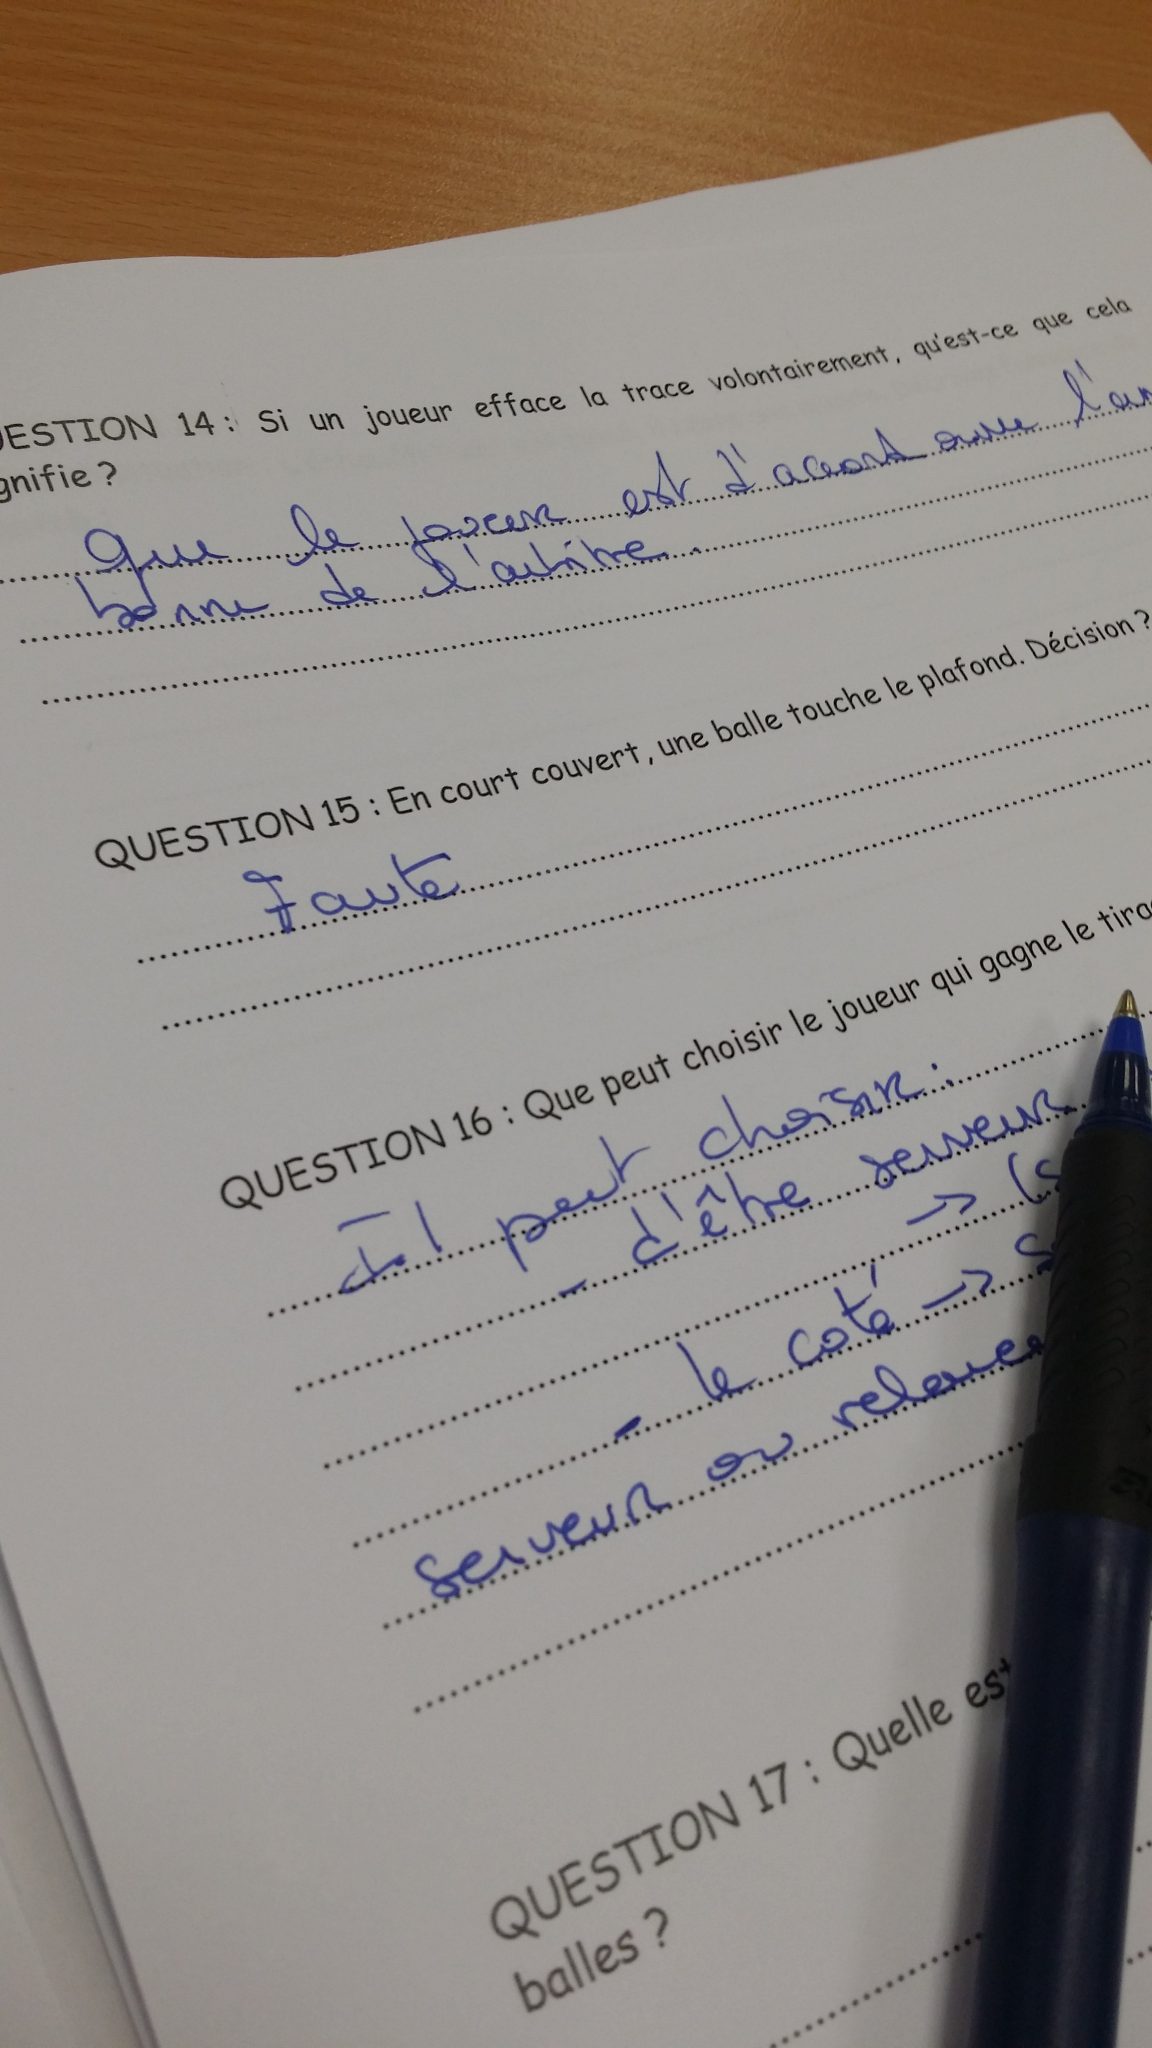 UESTION 14 : Si un joueur efface la trace volontairement, qu'est-ce que cela
gnifie ?
Que le joueur est d'accord avec l'an
bonne de l'arbitre.
QUESTION 15 : En court couvert, une balle touche le plafond. Décision ?
Faute
QUESTION 16 : Que peut choisir le joueur qui gagne le tira
Il peut choisir :
- d'être serveur
→ (s
- le coté → s
serveur ou relanceu
QUESTION 17 : Quelle est
balles ?